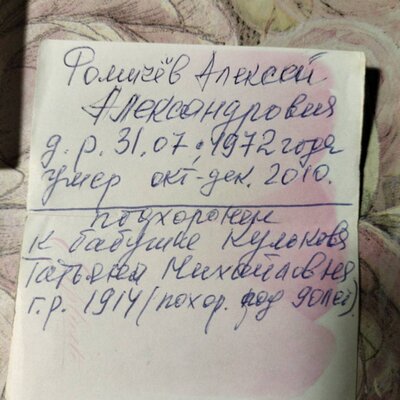 Фомичёв Алексей
Александрович
д. р. 31.07.1972 года
умер окт-дек. 2010.
подхоронен
к бабушке Кулакова
Татьяна Михайловна
г.р. 1914 (похор. под